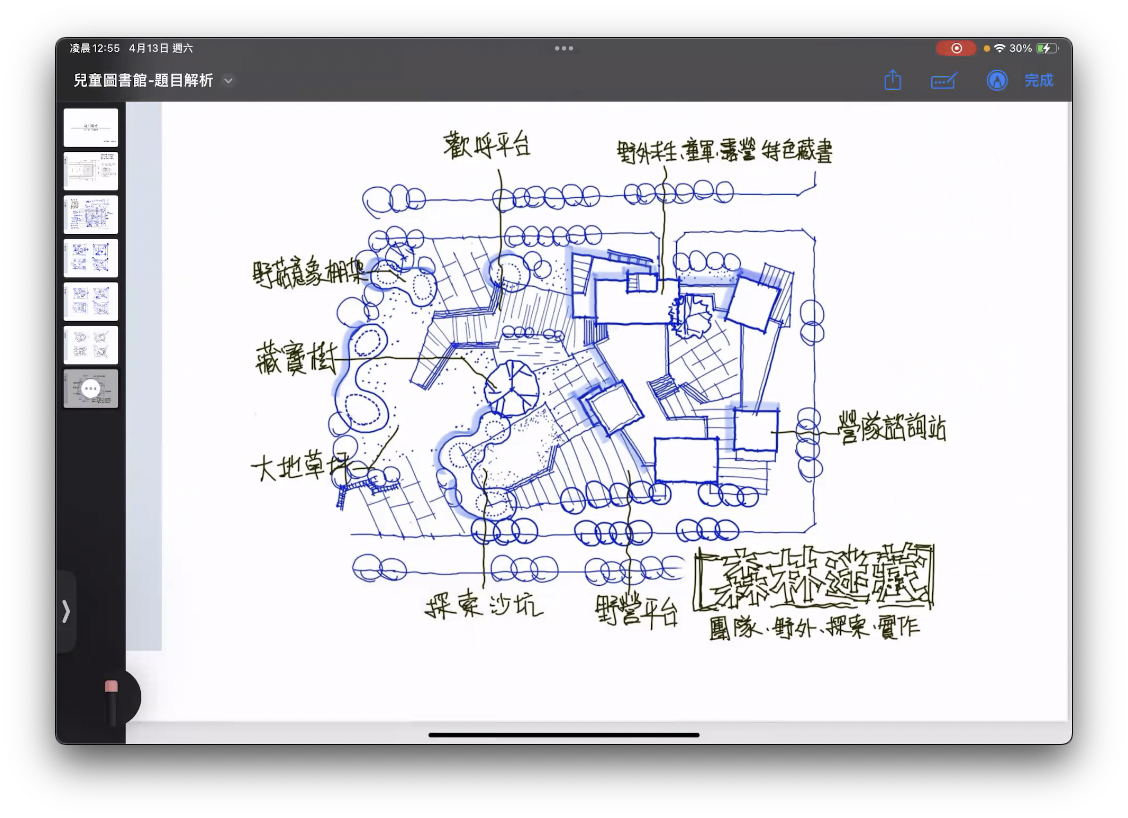 凌晨12:55 4月13日 週六
30%
兒童圖書館-題目解析
完成
歡呼平台
野外求生、童軍、露營特色藏書
野菇意象棚架
藏寶樹
大地草坪
營隊諮詢站
探索沙坑
野營平台
森林迷藏
團隊、野外、探索、實作